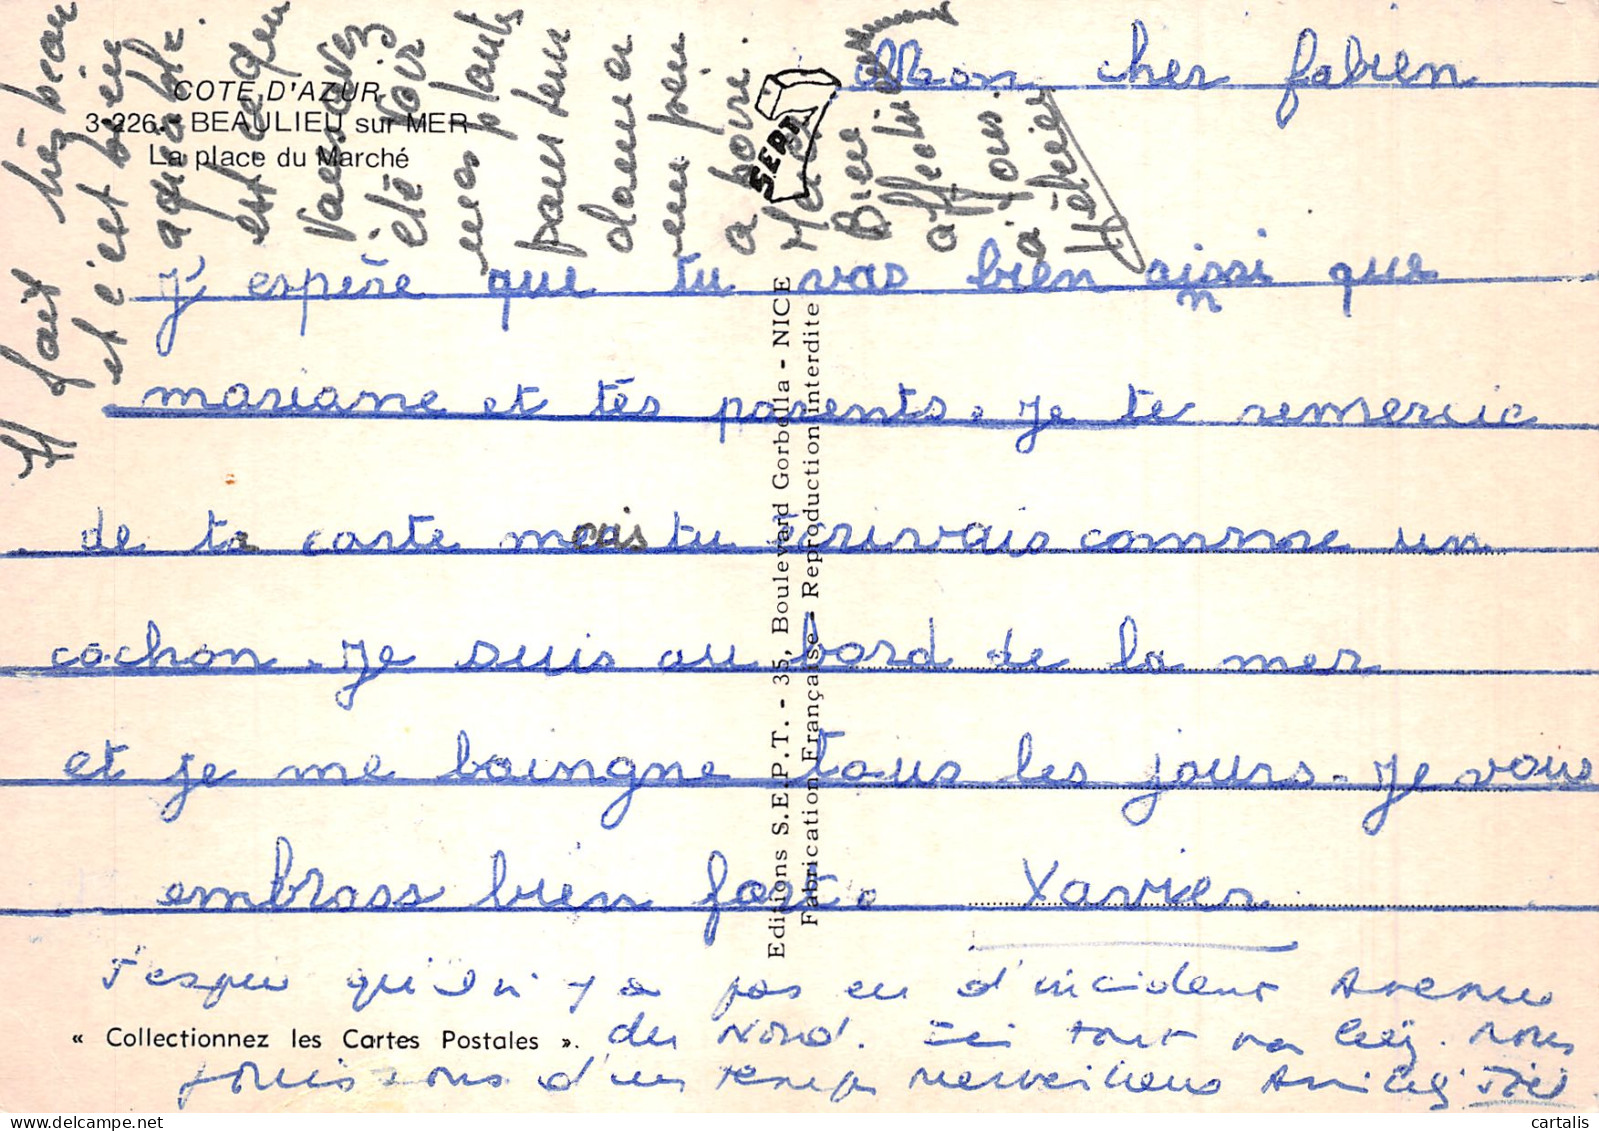 COTE D'AZUR
3-226. - BEAULIEU sur MER
La place du Marché
Mon cher fabien
J' espére que tu vas bien ainssi que
mariane et tés parents. Je te remercie
de ta carte mais tu écrivais comme un
cochon. Je suis au bord de la mer
et je me baingne tous les jours. Je vous
embrass bien fort. Xavier
J'espère qu'il n'y a pas eu d'incident Avenue
du Nord. Ici tout va bien. Nous
jouissons d'un temps merveilleux
« Collectionnez les Cartes Postales ».
Il fait très beau
et c'est bien
agréable.
est ce que
Vous avez
été voir
mes plantes
pour leur
donner
un peu
à boire.
Merci
Bien
affectueusement
à tous.
à
S.E.P.T.
Editions S.E.P.P.T. - 35, Boulevard Gorbella - NICE
Fabrication Française - Reproduction interdite
cartalis